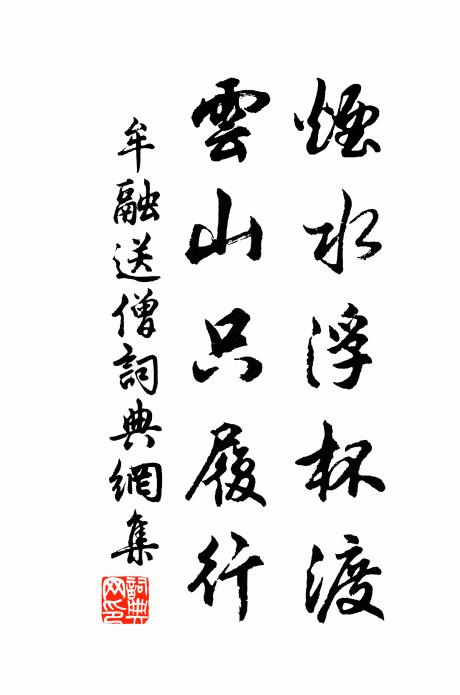 煙水浮杯渡
雲山只履行
牟融送僧詞典網集
詞典網印